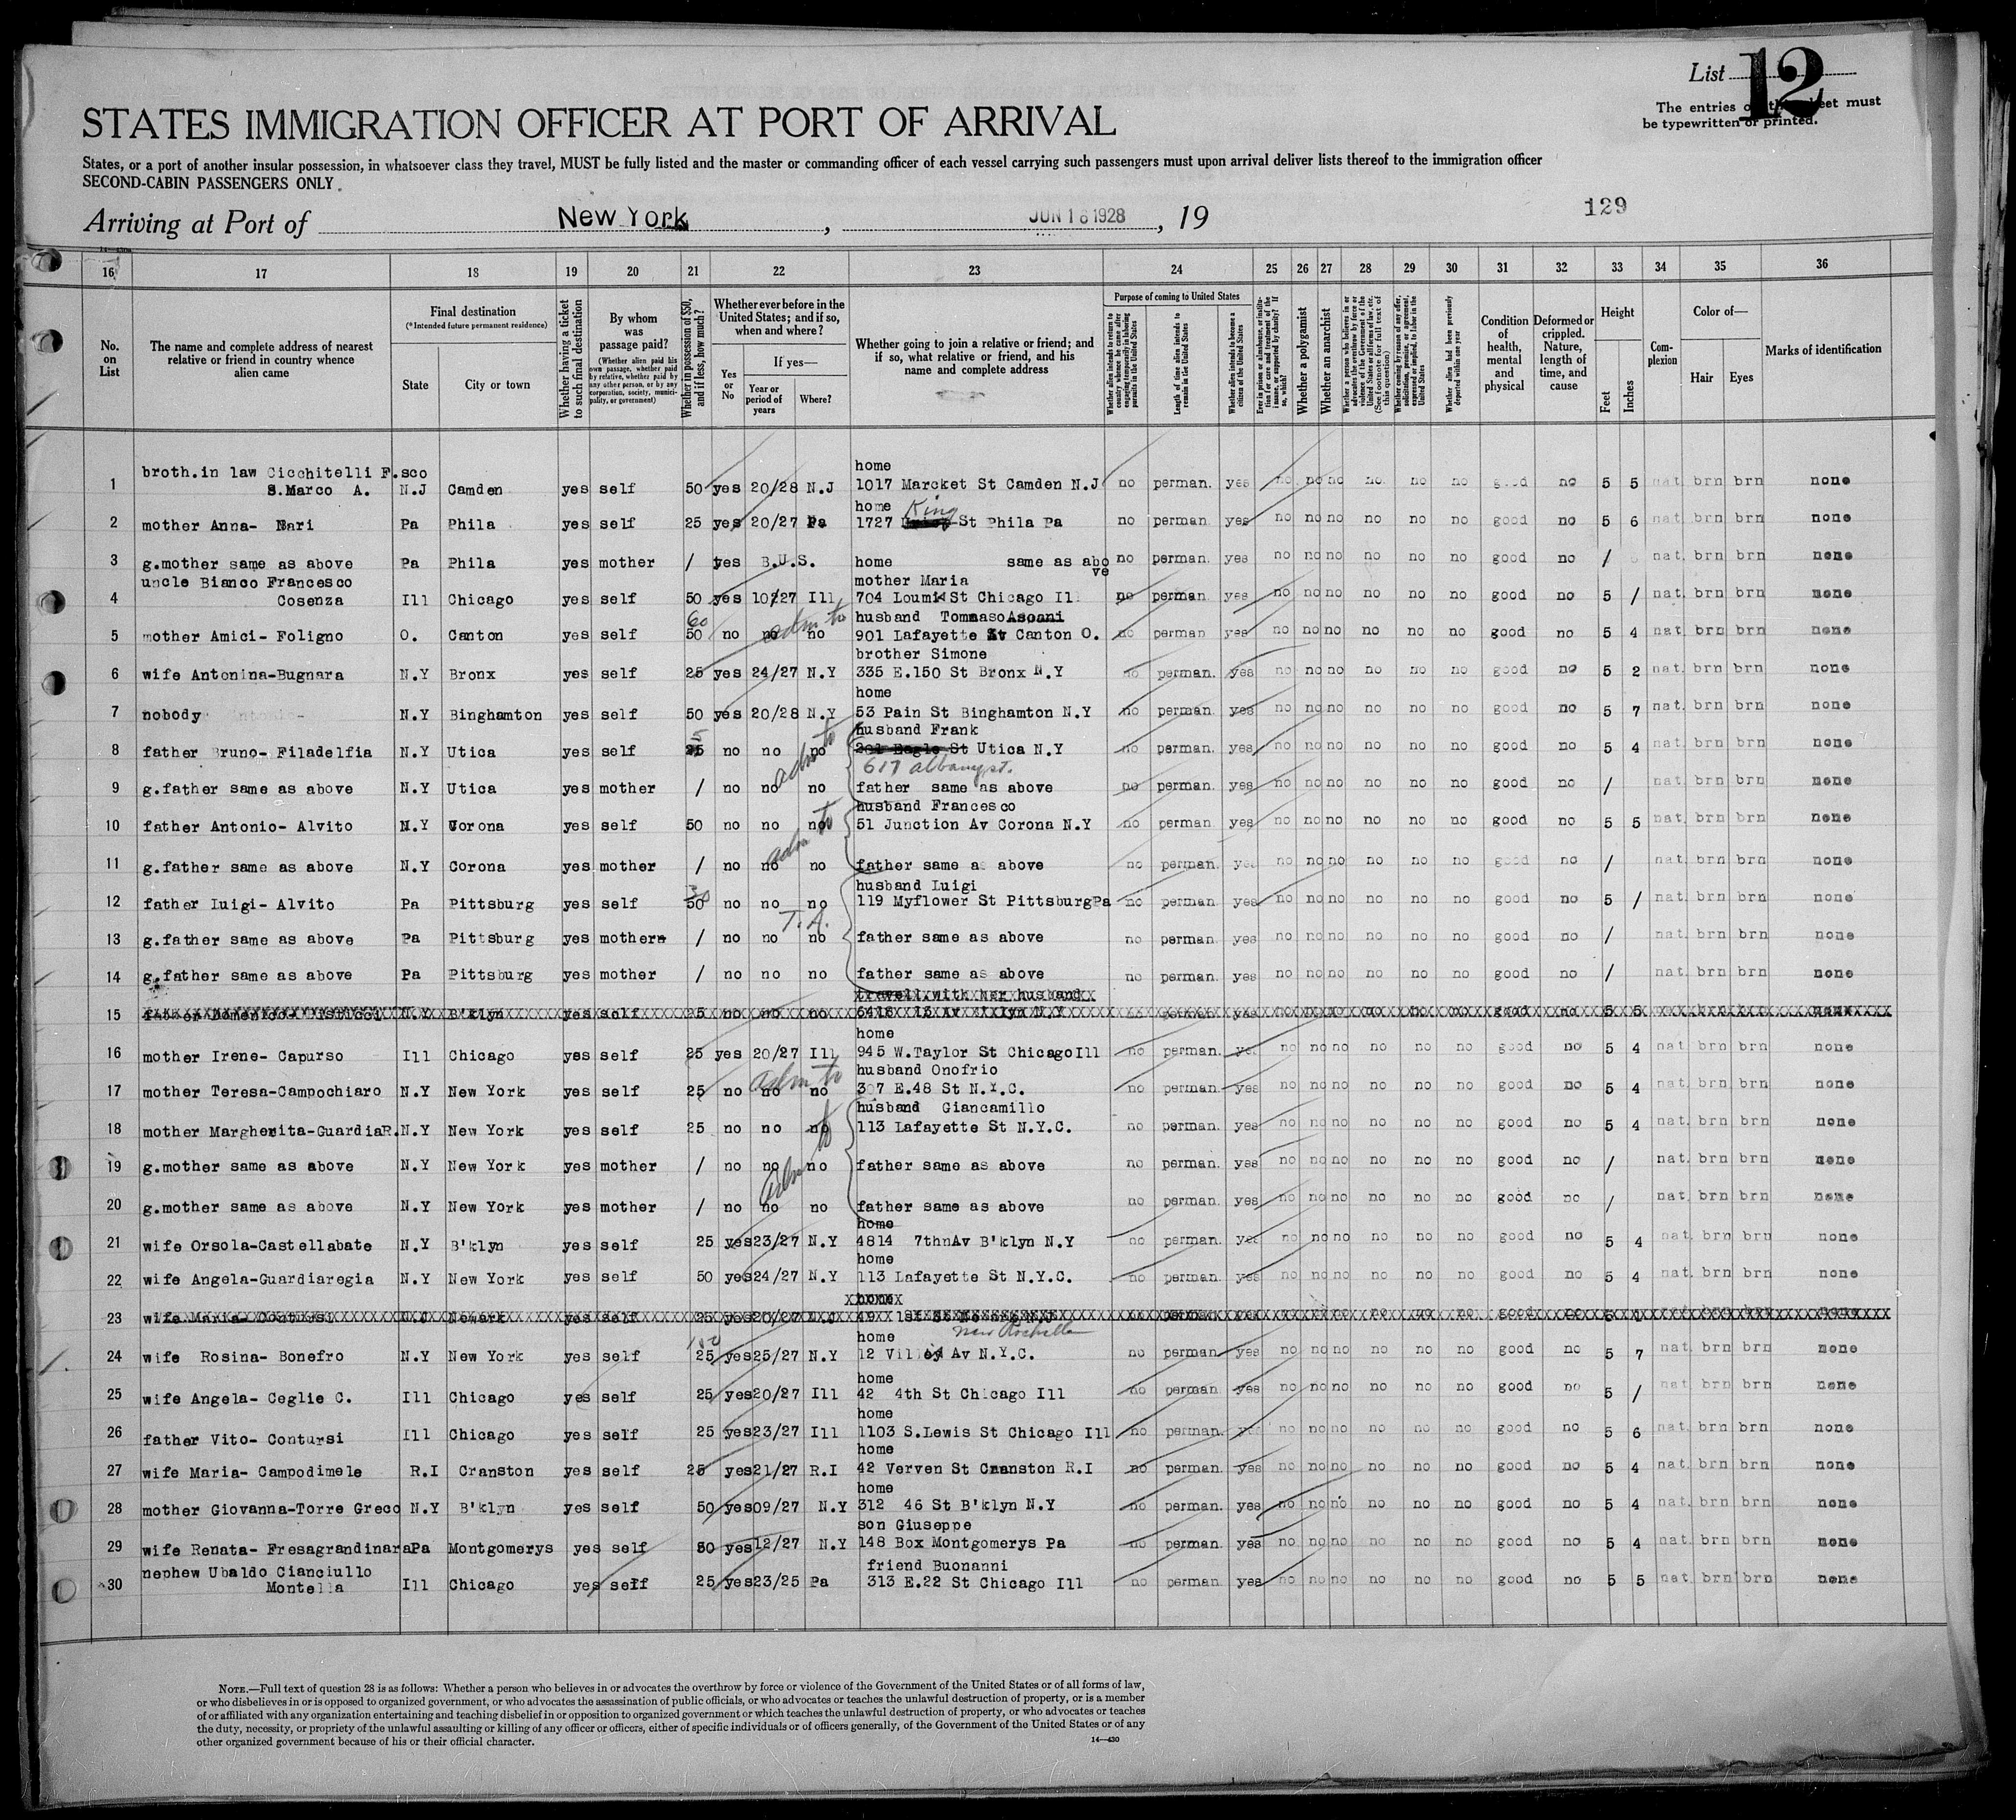 List 12
The entries on this sheet must
be typewritten or printed.
STATES IMMIGRATION OFFICER AT PORT OF ARRIVAL
States, or a port of another insular possession, in whatsoever class they travel, MUST be fully listed and the master or commanding officer of each vessel carrying such passengers must upon arrival deliver lists thereof to the immigration officer
SECOND-CABIN PASSENGERS ONLY
129
Arriving at Port of New York, JUN 18 1928, 19
16 17 18 19 20 21 22 23 24 25 26 27 28 29 30 31 32 33 34 35 36
No. on List
The name and complete address of nearest relative or friend in country whence alien came
Final destination
(*Intended future permanent residence)
State
City or town
Whether having a ticket to such final destination
By whom was passage paid?
(Whether alien paid his own passage, whether paid by relative, whether paid by any other person, or by any corporation, society, municipality, or government)
Whether in possession of $50, and if less, how much?
Whether ever before in the United States; and if so, when and where?
Yes or No
If yes—
Year or period of years
Where?
Whether going to join a relative or friend; and if so, what relative or friend, and his name and complete address
Purpose of coming to United States
Whether alien intends to return to country whence he came after engaging temporarily in laboring pursuits in the United States
Length of time alien intends to remain in the United States
Whether alien intends to become a citizen of the United States
Ever in prison or almshouse, or institution for care and treatment of the insane, or supported by charity? If so, which?
Whether a polygamist
Whether an anarchist
Whether a person who believes in or advocates the overthrow by force or violence of the Government of the United States or all forms of law, etc. (See footnote for full text of this question)
Whether coming by reason of any offer, solicitation, promise, or agreement, expressed or implied, to labor in the United States
Whether alien had been previously deported within one year
Condition of health, mental and physical
Deformed or crippled. Nature, length of time, and cause
Height
Feet
Inches
Complexion
Color of—
Hair
Eyes
Marks of identification
broth.in law Cicchitelli F.sco home
1 S.Marco A. N.J Camden yes self 50 yes 20/28 N.J 1017 Marcket St Camden N.J no perman. yes no no no no no no good no 5 5 nat brn brn none
home King
2 mother Anna- Bari Pa Phila yes self 25 yes 20/27 Pa 1727 St Phila Pa no perman yes no no no no no no good no 5 6 nat. brn brn none
3 g.mother same as above Pa Phila yes mother / yes B.U.S. home same as above no perman yes no no no no no no good no / nat. brn brn none
uncle Bianco Francesco mother Maria
4 Cosenza Ill Chicago yes self 50 yes 10/27 Ill 704 Loumis St Chicago Il no perman yes no no no no no no good no 5 / nat. brn brn none
60 adm to husband Tommaso Asoani
5 mother Amici- Foligno O. Canton yes self 50 no no no 901 Lafayette St Canton O. no perman yes no no no no no no good no 5 4 nat. brn brn none
brother Simone
6 wife Antonina-Bugnara N.Y Bronx yes self 25 yes 24/27 N.Y 335 E.150 St Bronx N.Y no perman. yes no no no no no no good no 5 2 nat. brn brn none
home
7 nobody N.Y Binghamton yes self 50 yes 20/28 N.Y 53 Pain St Binghamton N.Y no perman. yes no no no no no no good no 5 7 nat. brn brn none
5 adm to husband Frank
8 father Bruno- Filadelfia N.Y Utica yes self 25 no no no 201 Eagle St Utica N.Y no perman yes no no no no no no good no 5 4 nat. brn brn none
617 albany st.
9 g.father same as above N.Y Utica yes mother / no no no father same as above no perman. yes no no no no no no good no / nat. brn brn none
husband Francesco
10 father Antonio- Alvito N.Y Corona yes self 50 no no no 51 Junction Av Corona N.Y no perman yes no no no no no no good no 5 5 nat. brn brn none
adm to
11 g.father same as above N.Y Corona yes mother / no no no father same as above no perman. yes no no no no no no good no / nat. brn brn none
30 husband Luigi
12 father Luigi- Alvito Pa Pittsburg yes self 50 no no no 119 Myflower St Pittsburg Pa no perman yes no no no no no no good no 5 / nat. brn brn none
T.A.
13 g.father same as above Pa Pittsburg yes mother / no no no father same as above no perman. yes no no no no no no good no / nat. brn brn none
14 g.father same as above Pa Pittsburg yes mother / no no no father same as above no perman yes no no no no no no good no / nat. brn brn none
travell.with her husband
15 father Domenico- N.Y B'klyn yes self 25 no no no 6418 15 Av B'klyn N.Y no perman yes no no no no no no good no 5 5 nat brn brn none
home
16 mother Irene- Capurso Ill Chicago yes self 25 yes 20/27 Ill 945 W.Taylor St Chicago Ill no perman. yes no no no no no no good no 5 4 nat brn brn none
adm to husband Onofrio
17 mother Teresa-Campochiaro N.Y New York yes self 25 no no no 307 E.48 St N.Y.C. no perman yes no no no no no no good no 5 4 nat. brn brn none
husband Giancamillo
18 mother Margherita-GuardiaR. N.Y New York yes self 25 no no no 113 Lafayette St N.Y.C. no perman. yes no no no no no no good no 5 4 nat. brn brn none
adm to
19 g.mother same as above N.Y New York yes mother / no no no father same as above no perman. yes no no no no no no good no / nat. brn brn none
20 g.mother same as above N.Y New York yes mother / no no no father same as above no perman. yes no no no no no no good no / nat. brn brn none
home
21 wife Orsola-Castellabate N.Y B'klyn yes self 25 yes 23/27 N.Y 4814 7thnAv B'klyn N.Y no perman. yes no no no no no no good no 5 4 nat. brn brn none
home
22 wife Angela-Guardiaregia N.Y New York yes self 50 yes 24/27 N.Y 113 Lafayette St N.Y.C. no perman. yes no no no no no no good no 5 4 nat. brn brn none
home
23 wife Maria- Contursi N.J Newark yes self 25 yes 20/27 N.J 49 1st St Newark N.J no perman yes no no no no no no good no 5 4 nat brn brn none
100 home New Rochelle
24 wife Rosina- Bonefro N.Y New York yes self 25 yes 25/27 N.Y 12 Villey Av N.Y.C. no perman. yes no no no no no no good no 5 7 nat. brn brn none
home
25 wife Angela- Ceglie C. Ill Chicago yes self 25 yes 20/27 Ill 42 4th St Chicago Ill no perman yes no no no no no no good no 5 / nat brn brn none
home
26 father Vito- Contursi Ill Chicago yes self 25 yes 23/27 Ill 1103 S.Lewis St Chicago Ill no perman. yes no no no no no no good no 5 6 nat. brn brn none
home
27 wife Maria- Campodimele R.I Cranston yes self 25 yes 21/27 R.I 42 Verven St Cranston R.I no perman. yes no no no no no no good no 5 4 nat. brn brn none
home
28 mother Giovanna-Torre Greco N.Y B'klyn yes self 50 yes 09/27 N.Y 312 46 St B'klyn N.Y no perman. yes no no no no no no good no 5 4 nat. brn brn none
son Giuseppe
29 wife Renata- Fresagrandinara Pa Montgomerys yes self 50 yes 12/27 N.Y 148 Box Montgomerys Pa no perman. yes no no no no no no good no 5 4 nat. brn brn none
nephew Ubaldo Cianciullo friend Buonanni
30 Montella Ill Chicago yes self 25 yes 23/25 Pa 313 E.22 St Chicago Ill no perman. yes no no no no no no good no 5 5 nat. brn brn none
NOTE.—Full text of question 28 is as follows: Whether a person who believes in or advocates the overthrow by force or violence of the Government of the United States or of all forms of law,
or who disbelieves in or is opposed to organized government, or who advocates the assassination of public officials, or who advocates or teaches the unlawful destruction of property, or is a member
of or affiliated with any organization entertaining and teaching disbelief in or opposition to organized government or which teaches the unlawful destruction of property, or who advocates or teaches
the duty, necessity, or propriety of the unlawful assaulting or killing of any officer or officers, either of specific individuals or of officers generally, of the Government of the United States or of any
other organized government because of his or their official character.
14—430